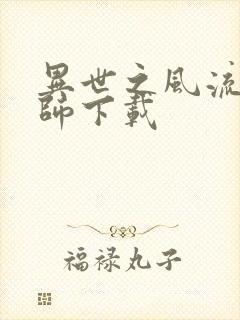 異世之風流
師下載
福禄丸子